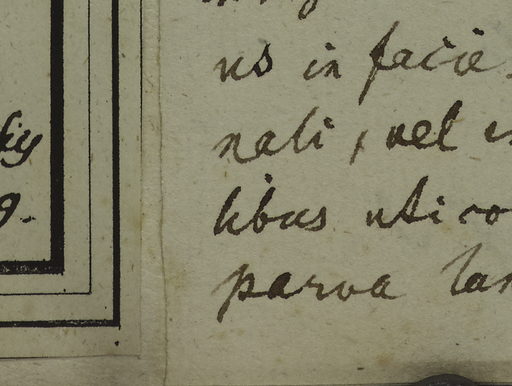 ky
9.
us in facie
nali, vel
libus uti co
parva lan